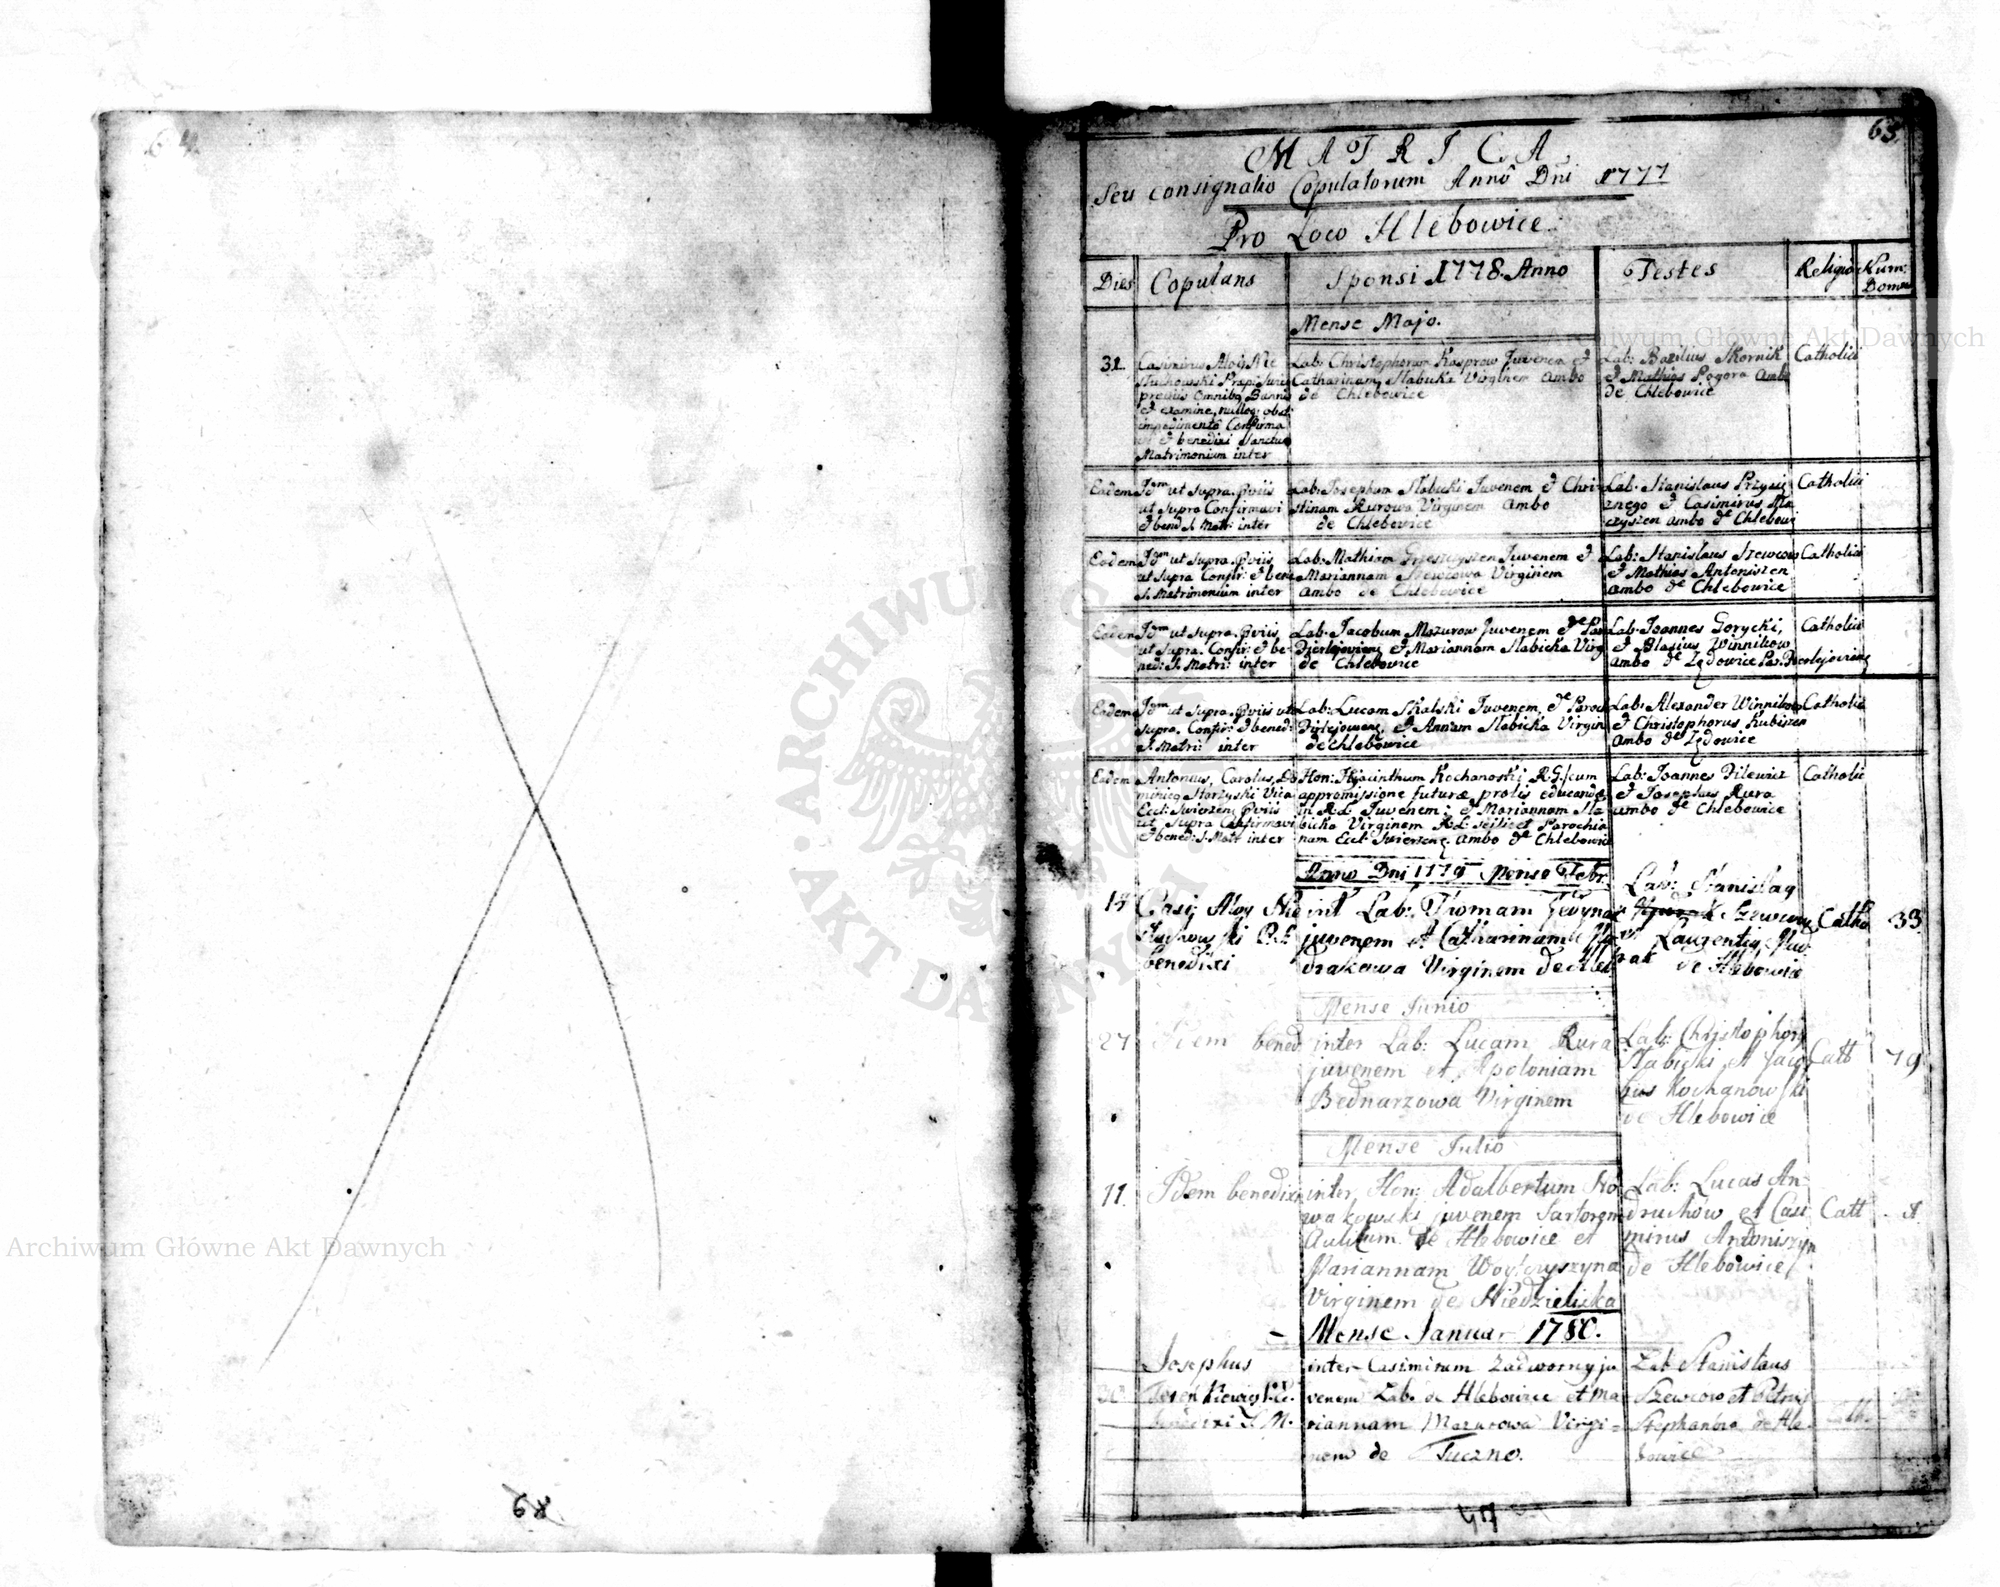 64.
65.
MATRICA
Seu consignatio Copulatorum Anno Dni 1777
Pro Loco Hlebowice
Dies Copulans Sponsi 1778. Anno Testes Religio Num: Domus
Mense Majo.
31. Casimirus Aloys Nie
stuchowski
previis omnibq Bannis
et examine, nulloq obst.
impedimento Confirma
vi et benedixi Sanctum
Matrimonium inter
Lab: Christophorum Kasprow Juvenem et
Catharinam Slabicka Virginem ambo
de Chlebowice
Lab: Bazilius Skornik
et Mathias Pogora Ambo
de Chlebowice
Catholici
Eadem Idem ut supra. Pviis
ut supra Confirmavi
et bened S. Matr: inter
Lab: Josephum Slabicki Juvenem et Chri-
stinam Rurowa Virginem Ambo
de Chlebowice
Lab. Stanislaus
et Casimirus
ambo de Chlebow
Catholici
Eadem Idem ut supra. Pviis
ut supra Confir: et bene
S. Matrimonium inter
Lab: Mathiam Juvenem et
Mariannam Szewcowa Virginem
Ambo de Chlebowice
Lab: Stanislaus Szewcow
et Mathias Antoniszen
ambo de Chlebowice
Catholici
Eadem Idem ut supra. Pviis,
ut supra. Confir: et be-
ned: S. Matri: inter
Lab. Jacobum Mazurow Juvenem de Par
et Mariannam Slabicka Virg
de Chlebowice
Lab. Joannes Gorycki,
et Blasius Winnikow
ambo de Zędowice Par.
Catholici
Eadem Idem ut supra. Pviis ut
supra. Confir: et bened:
S. Matri: inter
Lab: Lucam Skalski Juvenem, de Paroc
et Annam Slabicka Virgin
de Chlebowice
Lab: Alexander Winnikow
et Christophorus Kubiszen
ambo de Zędowice
Catholici
Eadem Antonius, Carolus, Do
minicq Starzyski Vica
Eccl: Swierzen: Pviis
ut supra Confirmavi
et bened: S. Matr inter
Hon: Hyacinthum Kochanoski R.G. cum
appromissione futuræ prolis educandæ
in R.L. Juvenem; et Mariannam Sla
bicka Virginem R.L. Parochia
nam Eccl: Swierzen: ambo de Chlebowic
Lab: Joannes Bilewicz
et Josephus Rura
ambo de Chlebowice
Catholic
Anno Dni 1779 Mense Febr.
14 Casi: Aloy Nie
stuchowski
benedixi
int Lab: Tomam
juvenem et Catharinam
Virginem de Hleb
Lab: Stanislaq
Szewcow
et Laurentiq
de Hlebowice
Catho 33
Mense Junio
27 Idem bened. inter Lab: Lucam Rura
juvenem et Apoloniam
Bednarzowa Virginem
Lab: Christophorq
Slabicki et Jaco
bus Kochanowski
de Hlebowice
Catt 79
Mense Julio
11. Idem benedixi inter Hon: Adalbertum No
wakowski juvenem Sartorem
Aulicum de Hlebowice et
Mariannam Woytowyszyna
Virginem de Niedzieliska
Lab: Lucas An
druchow et Casi
mirus Antoniszyn
de Hlebowice
Catt
Mense Januar 1780.
30 Josephus
benedixi S. M.
inter Casimirum Zadworny ju
venem Lab. de Hlebowice et Ma
riannam Mazurowa Virgi=
nem de Tuczno.
Lab Stanislaus
Szewcow et Petrus
Stephanków de Hle
bowice
68
47
Archiwum Główne Akt Dawnych
Archiwum Główne Akt Dawnych
ARCHIWUM GŁÓWNE AKT DAWNYCH